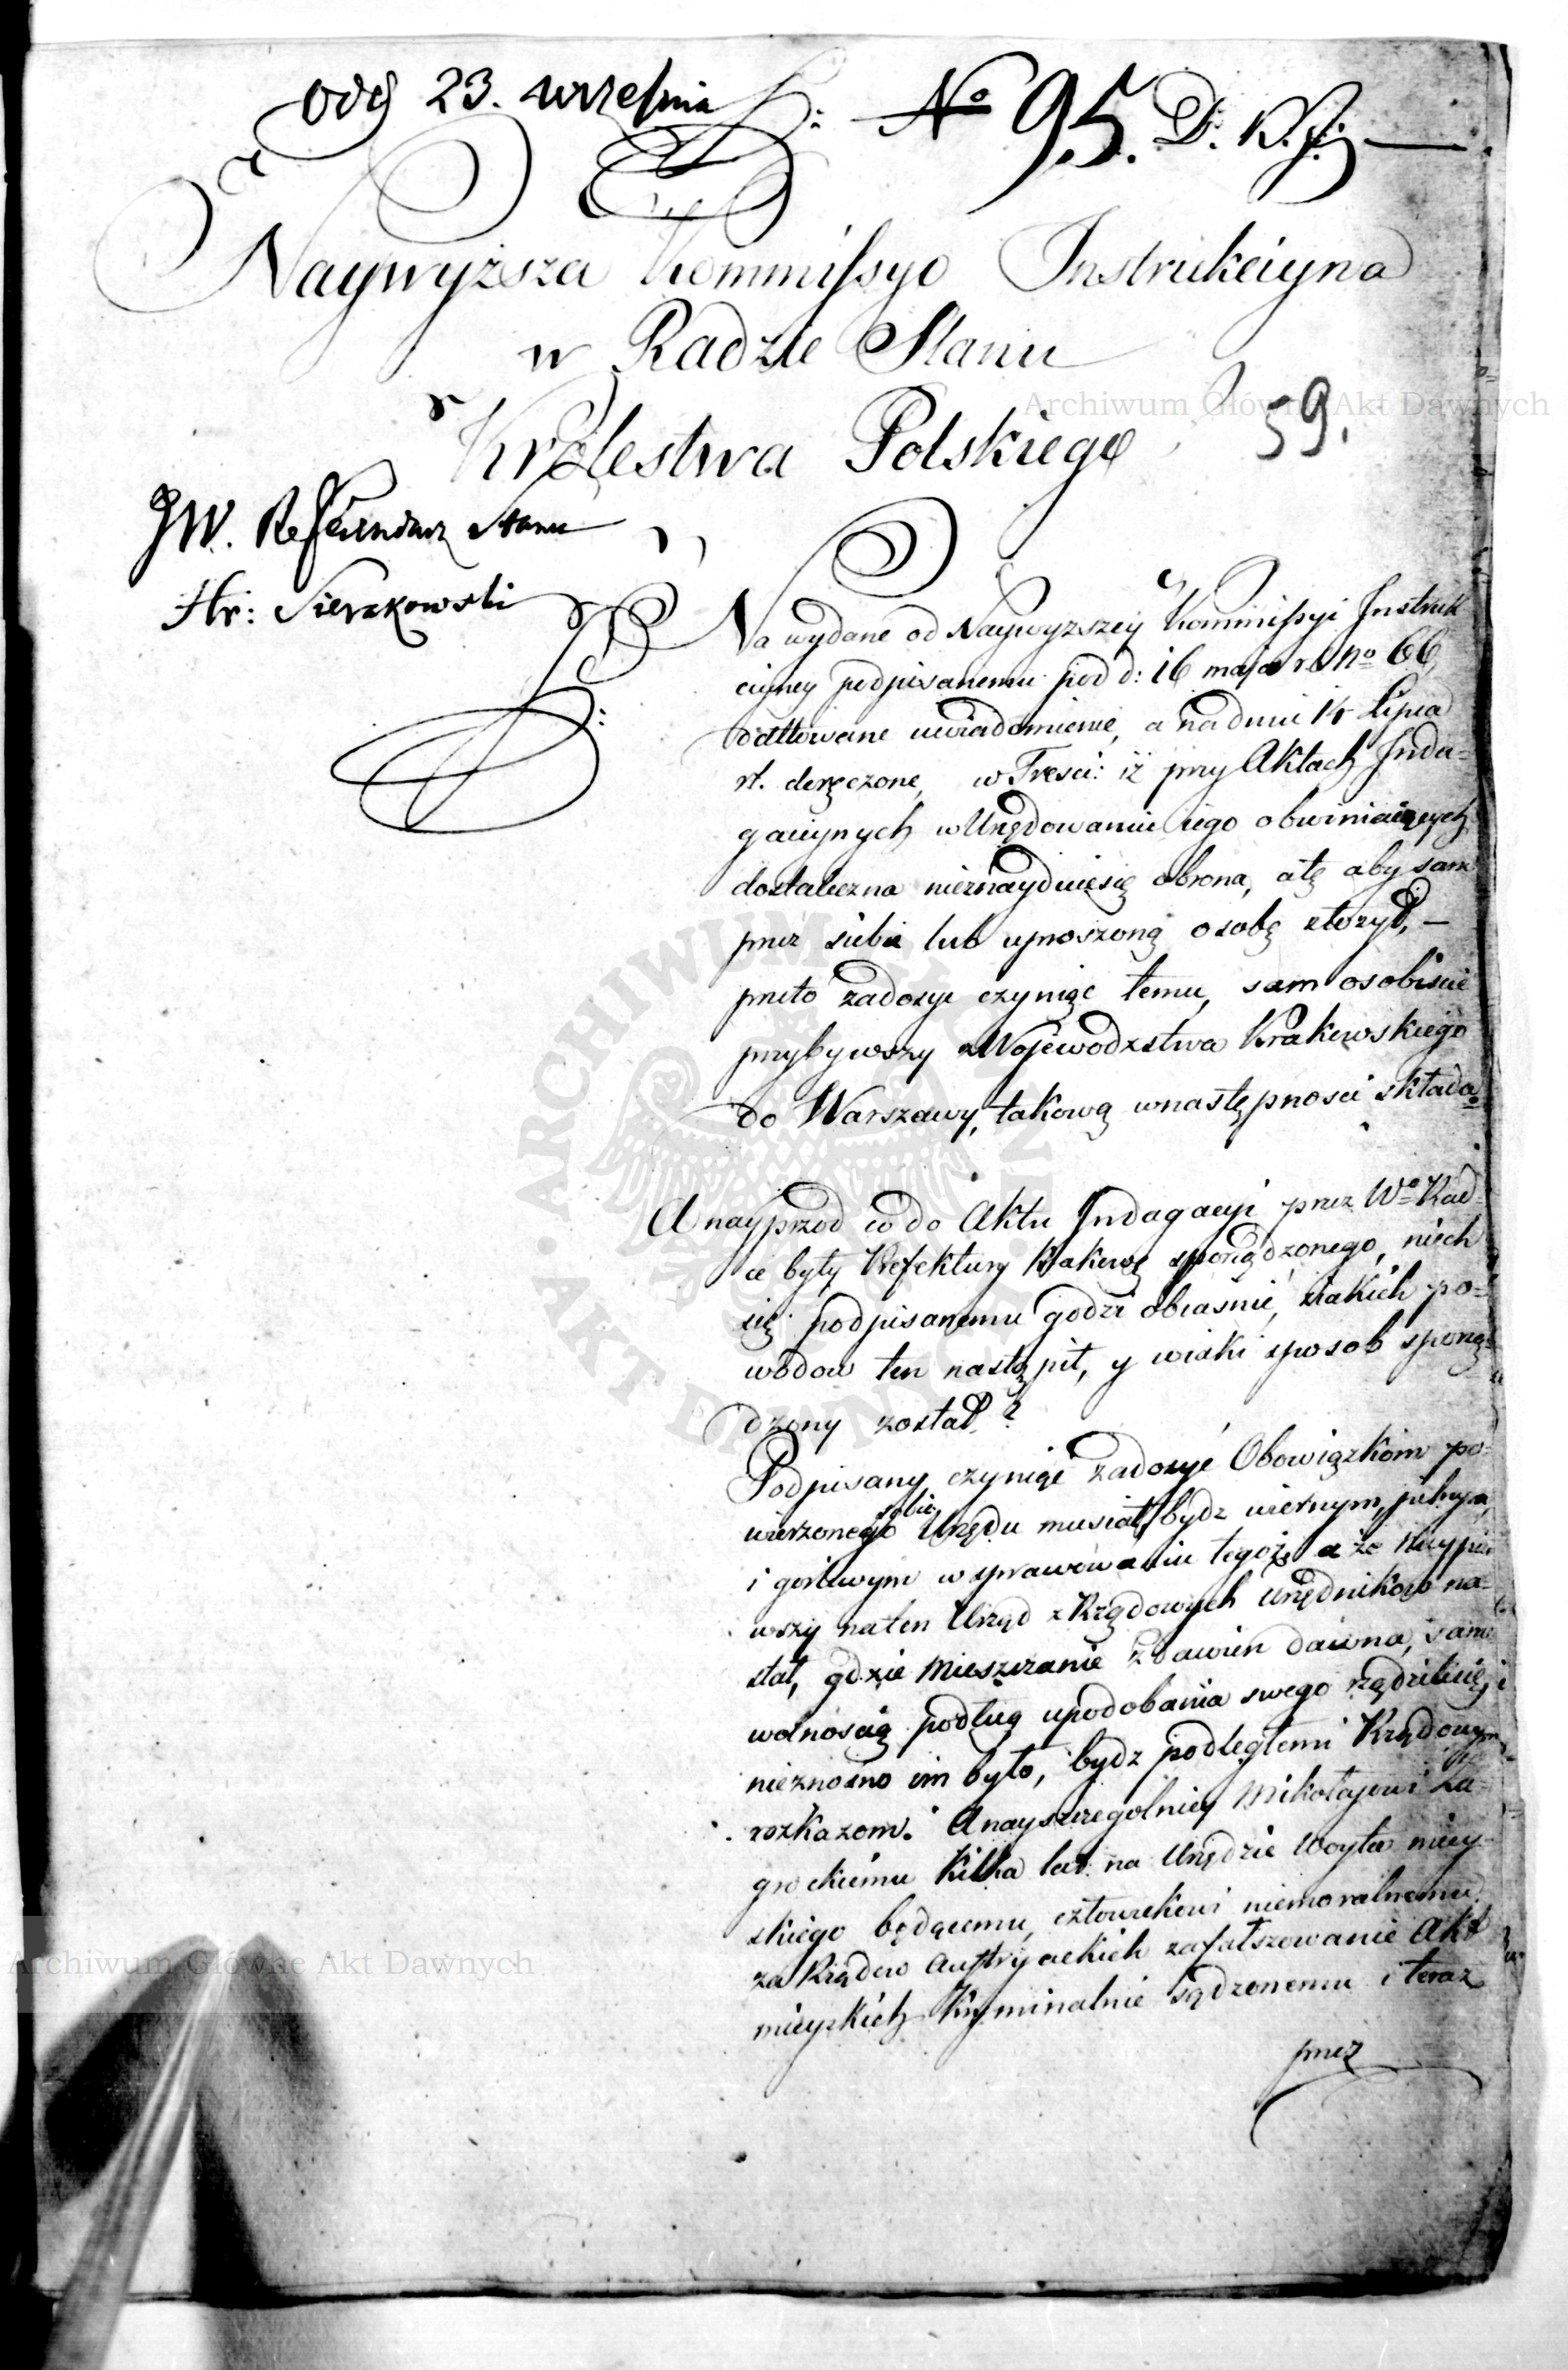 odd 23. września
No 95. D. K. J.
Naywyższa Kommissya Instrukciyna
w Radzie Stanu
Królestwa Polskiego
59.
JW. Referendarz Stanu
Hr: Sierakowski
Na wydane od Naywyższey Kommissyi Instruk
ciyney podpisanemu pod d: 16 maja r. b. No 66,
dattowane uwiadomienie, a na dniu 14 Lipca
r. t. doręczone, w Treści: iż przy Aktach Inda-
gacyinych w Urzędowaniu iego obwiniaiących
dostateczna nieznayduie się obrona, atę aby sam
przez siebie lub uproszoną osobę złożył, —
przeto zadosyc czyniąc temu, sam osobiscie
przybywszy z Wojewodztwa Krakowskiego
do Warszawy, takową w następnosci składa
A nayprzod co do Aktu Indagacyi przez Wo Rad-
ce były Prefektury Krakowę sporządzonego, niech
się podpisanemu godzi obiasnić, z iakich po-
wodow ten nastąpił, y w iaki sposob sporzą-
dzony został?
Podpisany czyniąc zadosyć Obowiązkom po-
wierzonego sobie Urzędu musiał bydz wiernym, pilnym,
i gorliwym w sprawowaniu tegoż, a że naypier
wszy na ten Urząd z Rządowych Urzędnikow na-
stał, gdzie Mieszczanie z dawien dawna, sami
wolnoscią podług upodobania swego rządzili się, i
nieznosno im było, bydz podległemi Rządowym
rozkazom. A nayszczegolniey Mikołajowi Za-
grockiemu kilka lat na Urzędzie Woyta miey-
skiego będącemu, człowiekowi niemoralnemu
za Rządow Austryackich za fałszowanie Akt
mieyskich Kryminalnie sądzonemu i teraz
przez
Archiwum Główne Akt Dawnych
Archiwum Główne Akt Dawnych